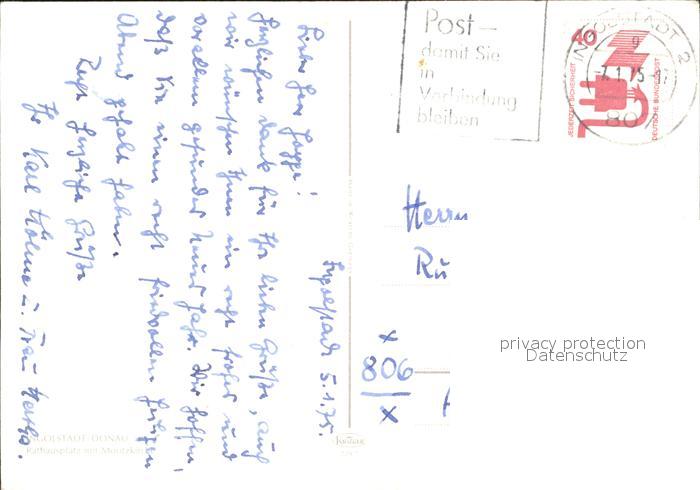 Post –
damit Sie
in
Verbindung
bleiben
INGOLSTADT 2
-7.1.75-17
80
40
JEDERZEIT SICHERHEIT
DEUTSCHE BUNDESPOST
Ingolstadt 5.1.75.
Lieber Herr
Herzlichen Dank für Ihre lieben Grüße, auch
wir wünschen Ihnen ein recht frohes und
vor allem gesundes Neues Jahr. Wir hoffen,
daß Sie einen recht friedvollen Heiligen
Abend gehabt haben.
Recht herzliche Grüße
Ihr Karl u. Frau
Herrn
Rü
x
806
x
privacy protection
Datenschutz
INGOLSTADT-DONAU
Rathausplatz mit Moritzkirche